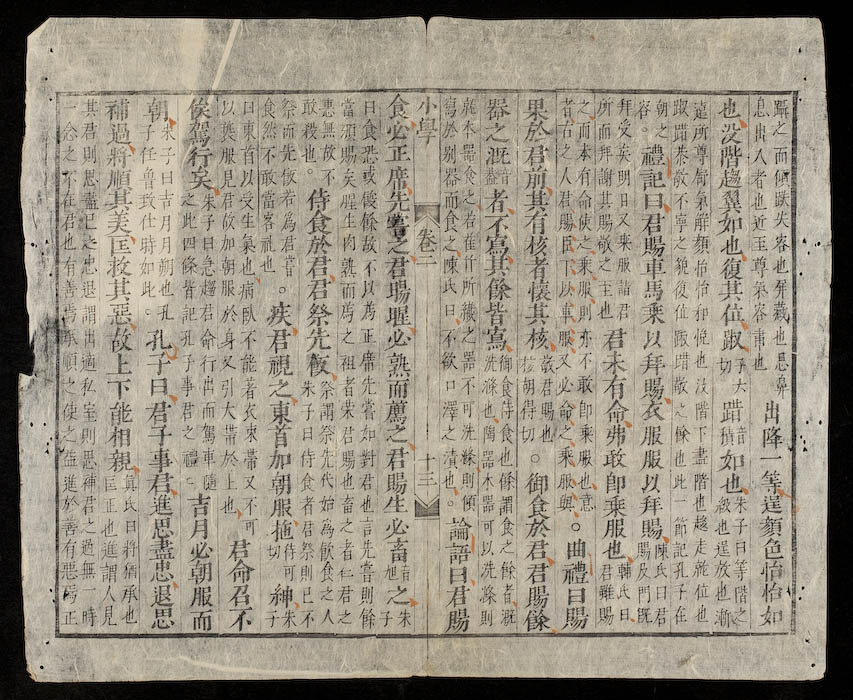 躡之而傾跌失容也屏藏也息鼻
息出入者也近至尊氣容肅也
出降一等逞顏色怡怡如
也没階趨翼如也復其位踧子六切踖音積如也
朱子曰等階之
級也逞放也漸
遠所尊舒氣解顏怡怡和悅也没階下盡階也趨走就位也
踧踖恭敬不寧之貌復位踧踖敬之餘也此一節記孔子在
朝之
容。
禮記曰君賜車馬乘以拜賜衣服服以拜賜
陳氏曰君
賜及門既
拜受矣明日又乘服詣君
所而拜謝其賜敬之至也
君未有命弗敢卽乘服也
韓氏曰
君雖賜
之而未有命使之乘服則亦不敢卽乘服也意
者古之人君賜臣下以車服又必命之乘服與
。曲禮曰賜
果於君前其有核者懷其核
敬君賜也
核胡得切
。御食於君君賜餘
器之漑音蓋者不寫其餘皆寫
御食侍食也餘謂食之餘者漑
洗滌也陶器木器可以洗滌則
就本器食之若萑竹所織之器不可洗滌則傾
寫於別器而食之陳氏曰不欲口澤之瀆也。
論語曰君賜
小學
卷二
十三
食必正席先嘗之君賜腥必熟而薦之君賜生必畜音旭之
朱
子
曰食恐或餕餘故不以薦正席先嘗如對君也言先嘗則餘
當頒賜矣腥生肉熟而薦之祖考榮君賜也畜之者仁君之
惠無故不
敢殺也。
侍食於君君祭先飯
祭謂祭先代始爲飲食之人
朱子曰侍食者君祭則己不
祭而先飯若爲君嘗
食然不敢當客禮也
。疾君視之東首加朝服拖徒可切紳
朱
子
曰東首以受生氣也病臥不能著衣束帶又不可
以䙝服見君故加朝服於身又引大帶於上也
。君命召不
俟駕行矣
朱子曰急趨君命行出而駕車隨
之此四條皆記孔子事君之禮。
吉月必朝服而
朝
朱子曰吉月月朔也孔
子在魯致仕時如此。
孔子曰君子事君進思盡忠退思
補過將順其美匡救其惡故上下能相親
眞氏曰將猶承也
匡正也進謂入見
其君則思盡己之忠退謂出適私室則思補君之過無一時
一念之不在君也有善焉承順之使之益進於善有惡焉正